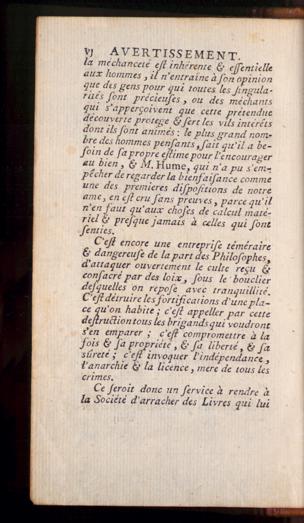 vj AVERTISSEMENT.
la méchanceté est inhérente & essentielle
aux hommes, il n'entraîne à son opinion
que des gens pour qui toutes les singula-
rités sont précieuses, ou des méchants
qui s'apperçoivent que cette prétendue
découverte protege & sert les vils intérêts
dont ils sont animés : le plus grand nom-
bre des hommes pensants, sait qu'il a be-
soin de sa propre estime pour l'encourager
au bien, & M. Hume, qui n'a pu s'em-
pêcher de regarder la bienfaisance comme
une des premieres dispositions de notre
ame, en est cru sans preuves, parce qu'il
n'en faut qu'aux choses de calcul maté-
riel & presque jamais à celles qui sont
senties.
C'est encore une entreprise téméraire
& dangereuse de la part des Philosophes,
d'attaquer ouvertement le culte reçu &
consacré par des loix, sous le bouclier
desquelles on repose avec tranquillité.
C'est détruire les fortifications d'une pla-
ce qu'on habite ; c'est appeller par cette
destruction tous les brigands qui voudront
s'en emparer ; c'est compromettre à la
fois & sa propriété, & sa liberté, & sa
sûreté ; c'est invoquer l'indépendance,
l'anarchie & la licence, mere de tous les
crimes.
Ce seroit donc un service à rendre à
la Société d'arracher des Livres qui lui